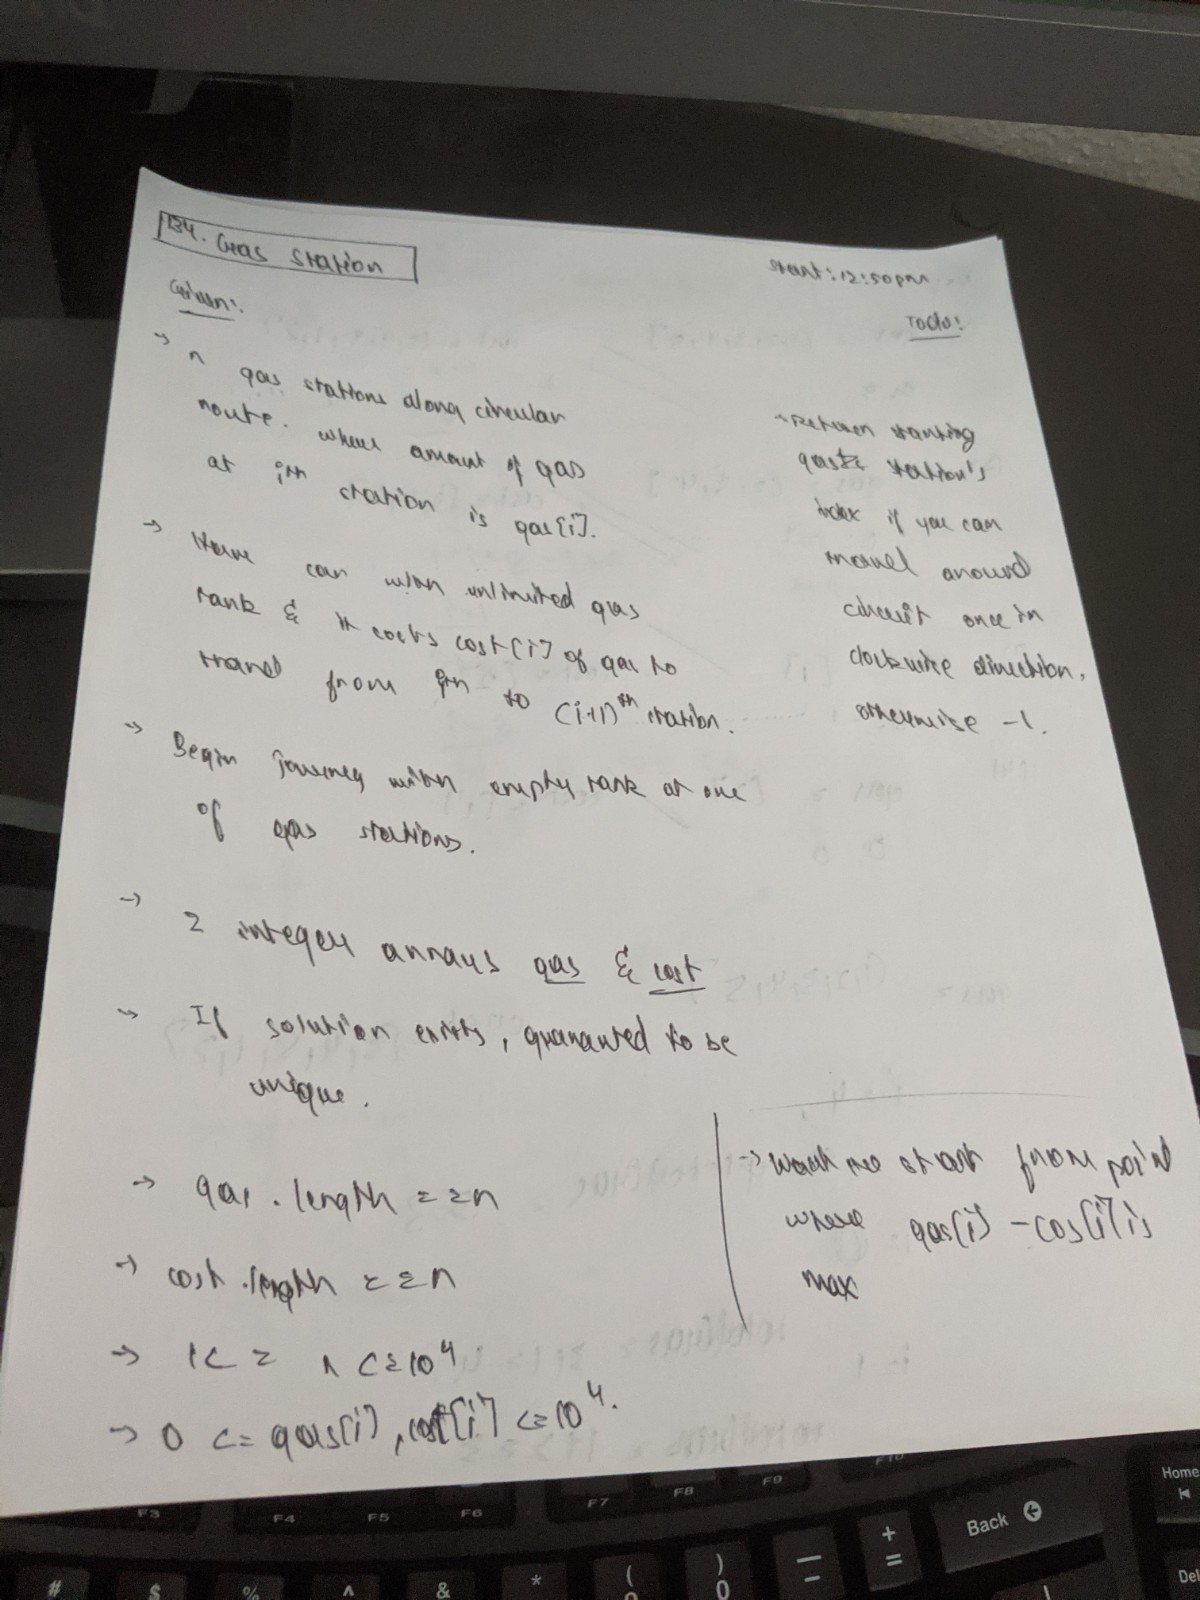 134. Gas Station
Start: 12:50pm
Given:
Todo:
→ n gas stations along circular
route. where amount of gas
at ith station is gas[i].
→ Have car with unlimited gas
tank & it costs cost[i] of gas to
travel from ith to (i+1)th station.
→ Begin journey with empty tank at one
of gas stations.
→ 2 integer arrays gas & cost
→ If solution exists, guaranteed to be
unique.
→ gas.length == n
→ cost.length == n
→ 1 <= n <= 10^4
→ 0 <= gas[i], cost[i] <= 10^4.
→ Return starting
gas station's
index if you can
travel around
circuit once in
clockwise direction,
otherwise -1.
→ start from point
where gas[i] - cos[i] is
max
F3
F4
F5
F6
F7
F8
F9
F10
Home
Back
Del
#
$
%
^
&
*
(
)
0
+
=